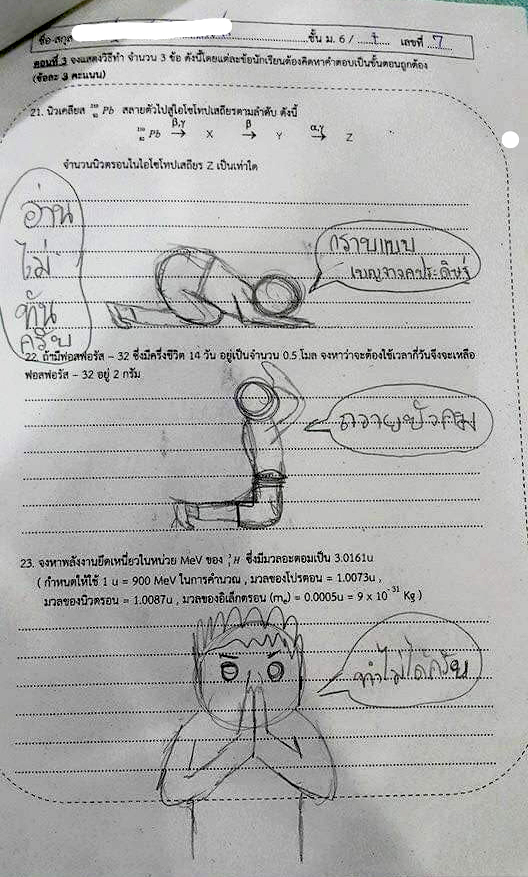 ชื่อ-สกุล ชั้น ม. 6 / เลขที่ 7
ตอนที่ 3 จงแสดงวิธีทำ จำนวน 3 ข้อ ดังนี้โดยแต่ละข้อนักเรียนต้องคิดหาคำตอบเป็นขั้นตอนถูกต้อง
(ข้อละ 3 คะแนน)
21. นิวเคลียส Pb สลายตัวไปสู่ไอโซโทปเสถียรตามลำดับ ดังนี้
Pb β,γ → X β → Y α,γ → Z
จำนวนนิวตรอนในไอโซโทปเสถียร Z เป็นเท่าใด
อ่าน
ไม่
ทัน
ครับ
กราบแบบ
เบญจางคประดิษฐ์
22. ถ้ามีฟอสฟอรัส – 32 ซึ่งมีครึ่งชีวิต 14 วัน อยู่เป็นจำนวน 0.5 โมล จงหาว่าจะต้องใช้เวลากี่วันจึงจะเหลือ
ฟอสฟอรัส – 32 อยู่ 2 กรัม
ถวายบังคม
23. จงหาพลังงานยึดเหนี่ยวในหน่วย MeV ของ H ซึ่งมีมวลอะตอมเป็น 3.0161u
( กำหนดให้ใช้ 1 u = 900 MeV ในการคำนวณ , มวลของโปรตอน = 1.0073u ,
มวลของนิวตรอน = 1.0087u , มวลของอิเล็กตรอน (mₑ) = 0.0005u = 9 x 10⁻³¹ Kg )
ทำไม่ได้ครับ